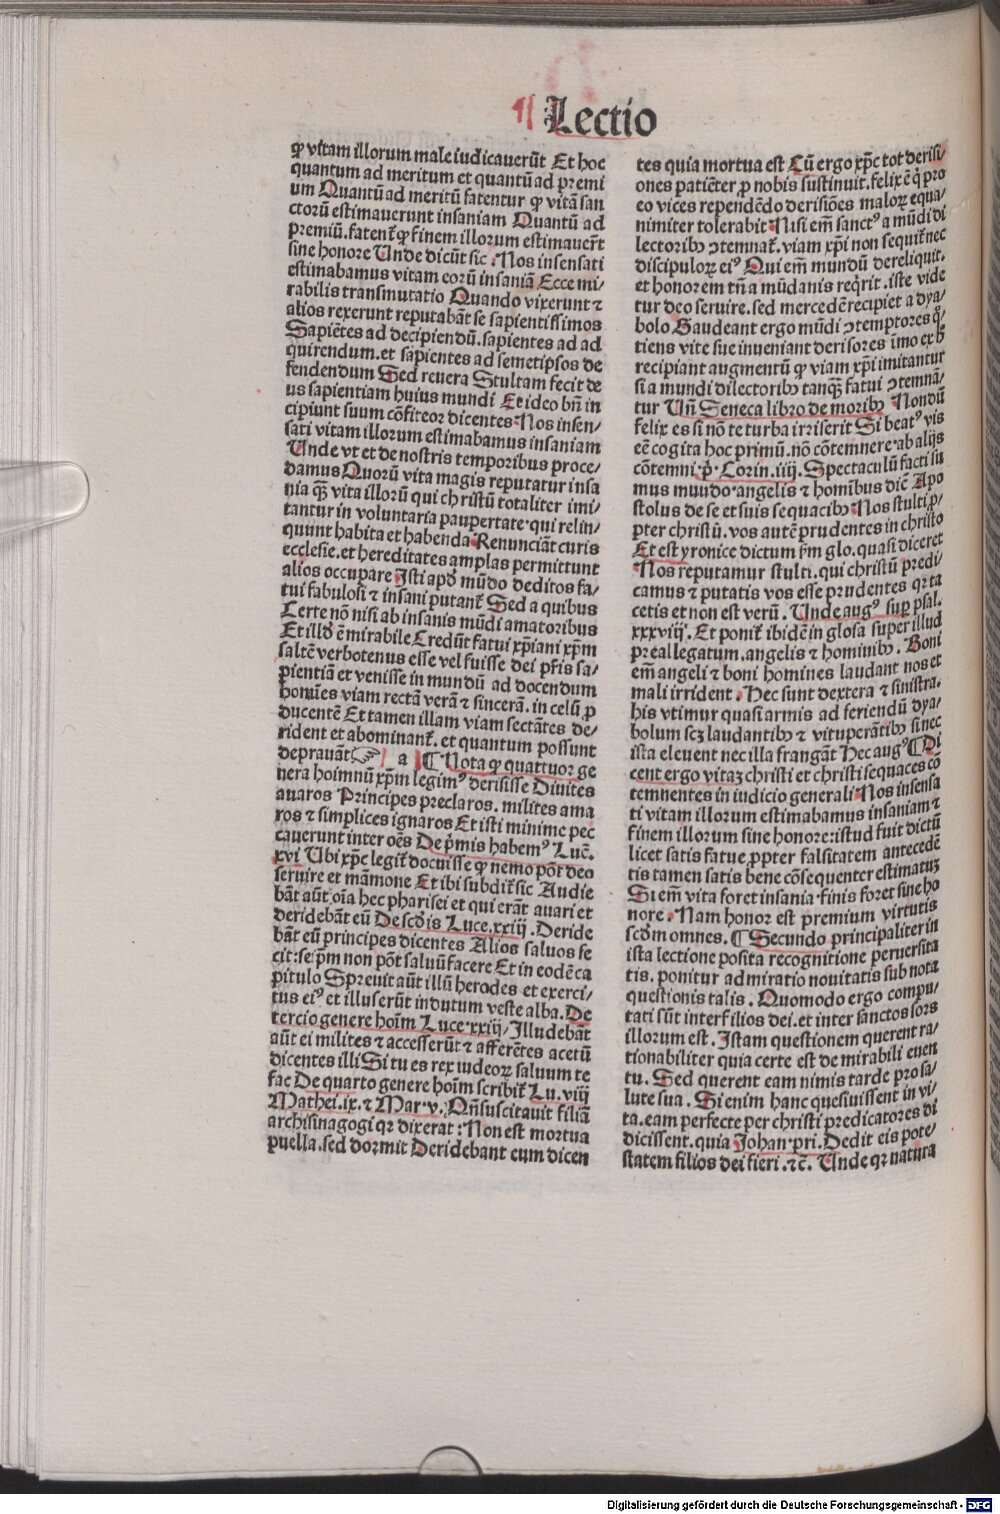 ¶ Lectio
ꝙ vitam illorum male iudicauerūt Et hoc
quantum ad meritum et quantū ad premi
um Quantū ad meritū fatentur ꝙ vitā san
ctorū estimauerunt insaniam Quantū ad
premiū. fatent᷑ ꝙ finem illorum estimauerūt
sine honore Unde dicūt sic. Nos insensati
estimabamus vitam eorū insaniā Ecce mi/
rabilis transmutatio Quando vixerunt ⁊
alios rexerunt reputabāt se sapientissimos
Sapiētes ad decipiendū. sapientes ad ad
quirendum. et sapientes ad semetipsos de
fendendum Sed reuera Stultam fecit de
us sapientiam huius mundi Et ideo bn̄ in
cipiunt suum cōfiteor dicentes Nos insen/
sati vitam illorum estimabamus insaniam
Unde vt et de nostris temporibus proce/
damus Quorū vita magis reputatur insa
nia qȝ̄ vita illorū qui christū totaliter imi/
tantur in voluntaria paupertate. qui relin/
quunt habita et habenda Renunciāt curis
ecclesie. et hereditates amplas permittunt
alios occupare Isti apd̓ mūdo deditos fa/
tui fabulosi ⁊ insani putant᷑ Sed a quibus
Certe nō nisi ab insanis mūdi amatoribus
Et illd̓ ē mirabile Credūt fatui xp̄iani xp̄m
saltē verbotenus esse vel fuisse dei pr̄is sa/
pientiā et venisse in mundū ad docendum
homines viam rectā verā ⁊ sincerā. in celū ꝑ
ducentē Et tamen illam viam sectātes de/
rident et abominant᷑. et quantum possunt
deprauāt ☞ a ¶ Nota ꝙ quattuor ge
nera hoimnū xp̄m legimꝰ derisisse Diuites
auaros Principes preclaros. milites ama
ros ⁊ simplices ignaros Et isti minime pec
cauerunt inter oēs De p̓mis habemꝰ Luc̄.
xvi Ubi xp̄c legit᷑ docuisse ꝙ nemo pōt deo
seruire et māmone Et ibi subdit᷑ sic Audie
bāt aūt oīa hec pharisei et qui erāt auari et
deridebāt eū De scd̓is Luce. xxiij. Deride
bāt eū principes dicentes Alios saluos fe
cit: seip̄m non pōt saluū facere Et in eodē ca
pitulo Spreuit aūt illū herodes et exerci/
tus eiꝰ et illuserūt indutum veste alba. De
tercio genere hoīm Luce. xxiij/ Illudebāt
aūt ei milites ⁊ accesserūt ⁊ afferētes acetū
dicentes illi Si tu es rex iudeoꝝ saluum te
fac De quarto genere hoīm scribit᷑ Lu. viij
Mathei. ix. ⁊ Mar. v. Qn̄ suscitauit filiā
archisinagogi qꝛ dixerat: Non est mortua
puella. sed dormit Deridebant eum dicen
tes quia mortua est Cū ergo xp̄c tot derisi/
ones patiēter ꝓ nobis sustinuit. felix ē q̇ pro
eo vices rependēdo derisiōes maloꝝ equa/
nimiter tolerabit Nisi em̄ sanctꝰ a mūdi di
lectoribꝰ ꝯtemnat᷑. viam xp̄i non sequit᷑ nec
discipuloꝝ eiꝰ Qui em̄ mundū dereliquit.
et honorem tn̄ a mūdanis req̇rit. iste vide
tur deo seruire. sed mercedē recipiet a dya/
bolo Gaudeant ergo mūdi ꝯtemptores q̇/
tiens vite sue inueniant derisores imo ex h̓
recipiant augmentū ꝙ viam xp̄i imitantur
si a mundi dilectoribꝰ tanqȝ fatui ꝯtemnā/
tur Un̄ Seneca libro de moribꝰ Nondū
felix es si nō te turba irriserit Si beatꝰ vis
eē cogita hoc primū. nō cōtemnere ab alijs
cōtemni. p̓. Corin. iiij. Spectaculū facti su
mus mundo. angelis ⁊ hominibus dic̄ Apo
stolus de se et suis sequacibꝰ Nos stulti ꝓ/
pter christū. vos autē prudentes in christo
Et est yronice dictum ẜm glo. quasi diceret
Nos reputamur stulti. qui christū predi/
camus ⁊ putatis vos esse prudentes qꝛ ta
cetis et non est verū. Unde augꝰ suꝑ psal.
xxxviij. Et ponit᷑ ibidē in glosa super illud
p̲: eal legatum. angelis ⁊ hominibꝰ. Boni
em̄ angeli ⁊ boni homines laudant nos et
mali irrident. Hec sunt dextera ⁊ sinistra.
his vtimur quasi armis ad feriendū dya/
bolum scȝ laudantibꝰ ⁊ vituperātibꝰ si nec
ista eleuent nec illa frangāt Hec augꝰ ¶ Di
cent ergo vitaȝ christi et christi sequaces cō
temnentes in iudicio generali Nos insensa
ti vitam illorum estimabamus insaniam ⁊
finem illorum sine honore: istud fuit dictū
licet satis fatue ꝓpter falsitatem antecedē
tis tamen satis bene cōsequenter estimatuȝ
Si em̄ vita foret insania. finis foret sine ho
nore. Nam honor est premium virtutis
scd̓m omnes. ¶ Secundo principaliter in
ista lectione posita recognitione peruersita
tis. ponitur admiratio nouitatis sub nota
questionis talis. Quomodo ergo compu/
tati sūt inter filios dei. et inter sanctos sors
illorum est. Istam questionem querent ra/
tionabiliter quia certe est de mirabili euen
tu. Sed querent eam nimis tarde pro sa/
lute sua. Si enim hanc quesiuissent in vi/
ta. eam perfecte per christi predicatores di
dicissent. quia Johan. pri. Dedit eis pote/
statem filios dei fieri. ⁊c̄. Unde qꝛ natura
Digitalisierung gefördert durch die Deutsche Forschungsgemeinschaft - DFG